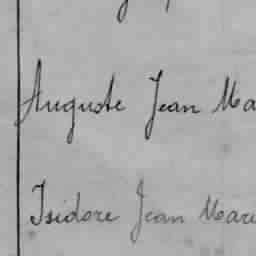 Auguste Jean Ma
Isidore Jean Mari